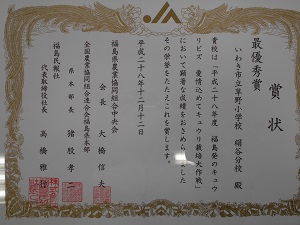 賞状
最優秀賞
いわき市立草野小学校 絹谷分校 殿
貴校は「平成二十八年度 福島発のキュウ
リビズ 愛情込めてキュウリ栽培大作戦」
において頭書の成績をおさめられました
その栄誉をたたえこれを賞します。
平成二十八年十二月十二日
福島県農業協同組合中央会
会長 大橋信夫
全国農業協同組合連合会福島県本部
県本部長 猪股孝二
福島民報社
代表取締役社長 高橋雅行